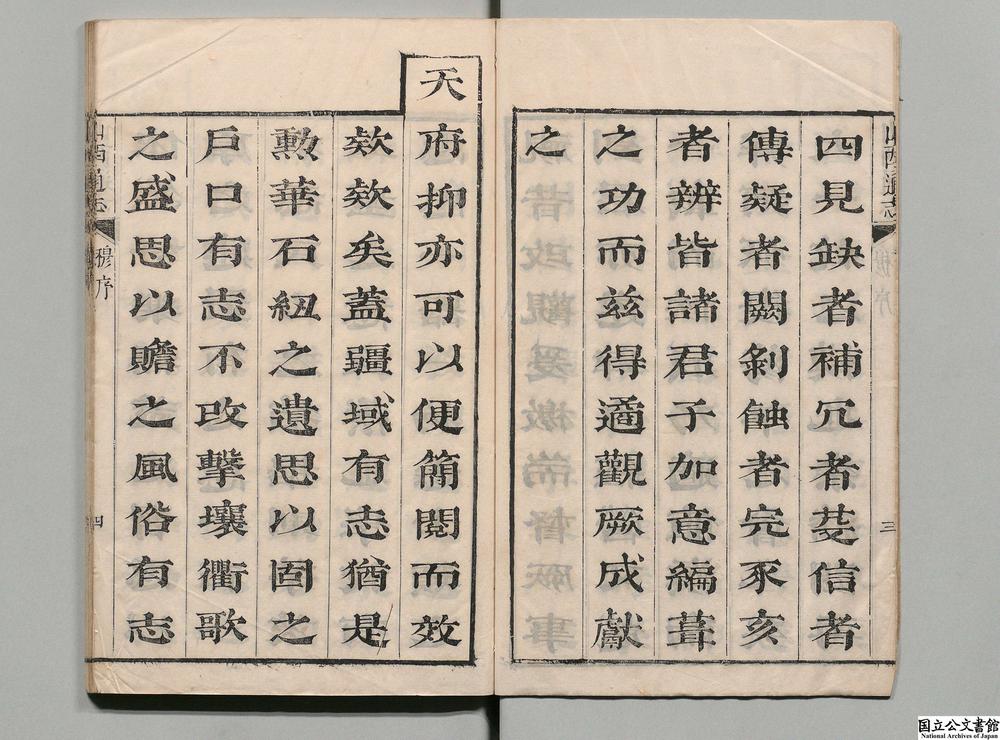 四見缺者補冗者芟信者
傳疑者闕剝蝕者完豕亥
者辨皆諸君子加意編葺
之功而茲得遹觀厥成獻
之
三
天
府抑亦可以便簡閱而效
欸欸矣蓋疆域有志猶是
勲華石紐之遺思以固之
戶口有志不改擊壤衢歌
之盛思以贍之風俗有志
山西通志
穆序
四
国立公文書館
National Archives of Japan